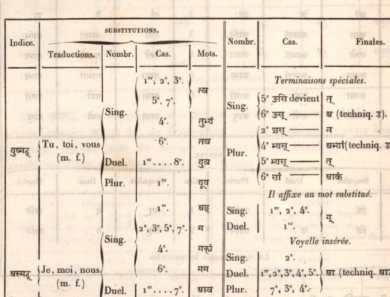 Indice. SUBSTITUTIONS. Nombr. Cas. Finales.
Traductions. Nombr. Cas. Mots.
Terminaisons spéciales.
1ʳᵉ, 2ᵉ, 3ᵉ. त्व
5ᵉ, 7ᵉ.
Sing. 4ᵉ. तुभ्यं
6ᵉ. तव
युष्मद् Tu, toi, vous (m. f.)
Duel. 1ʳᵉ....8ᵉ. युव
Plur. 1ʳᵉ. यूय
Sing. 5ᵉ ङसि devient त्
6ᵉ ङस् — अ (techniq. अ).
Plur. 2ᵉ शस् — न्
4ᵉ भ्यस् — भ्यम् (techniq.
5ᵉ भ्यस् — त्
6ᵉ — आकं
Il affixe au mot substitué.
Sing. 1ʳᵉ, 2ᵉ, 4ᵉ.
Duel. 1ʳᵉ. म्
Voyelle insérée.
Sing. 2ᵉ.
Duel. 1ʳᵉ, 2ᵉ, 3ᵉ, 4ᵉ, 5ᵉ. आ (techniq.
Plur. 7ᵉ, 3ᵉ, 4ᵉ.
अस्मद् Je, moi, nous (m. f.)
Sing. 1ʳᵉ. अह
2ᵉ, 3ᵉ, 5ᵉ, 7ᵉ. म
4ᵉ. मह्यं
6ᵉ. मम
Duel. 1ʳᵉ....7ᵉ. आव